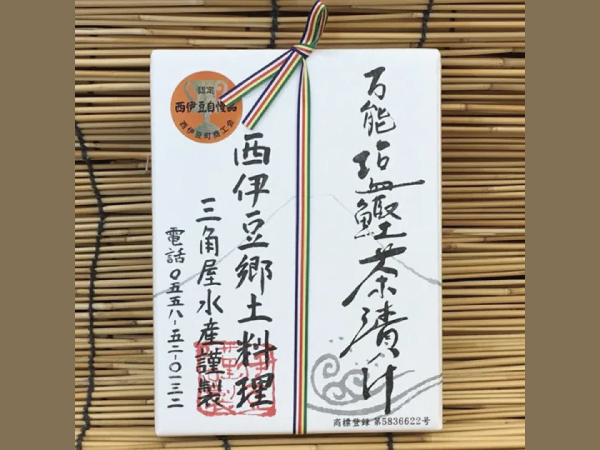 万能 塩鰹茶漬け
西伊豆郷土料理
三角屋水産謹製
電話〇五五八-五二-〇一三二
認定
西伊豆自慢品
西伊豆町商工会
商標登録 第5836622号